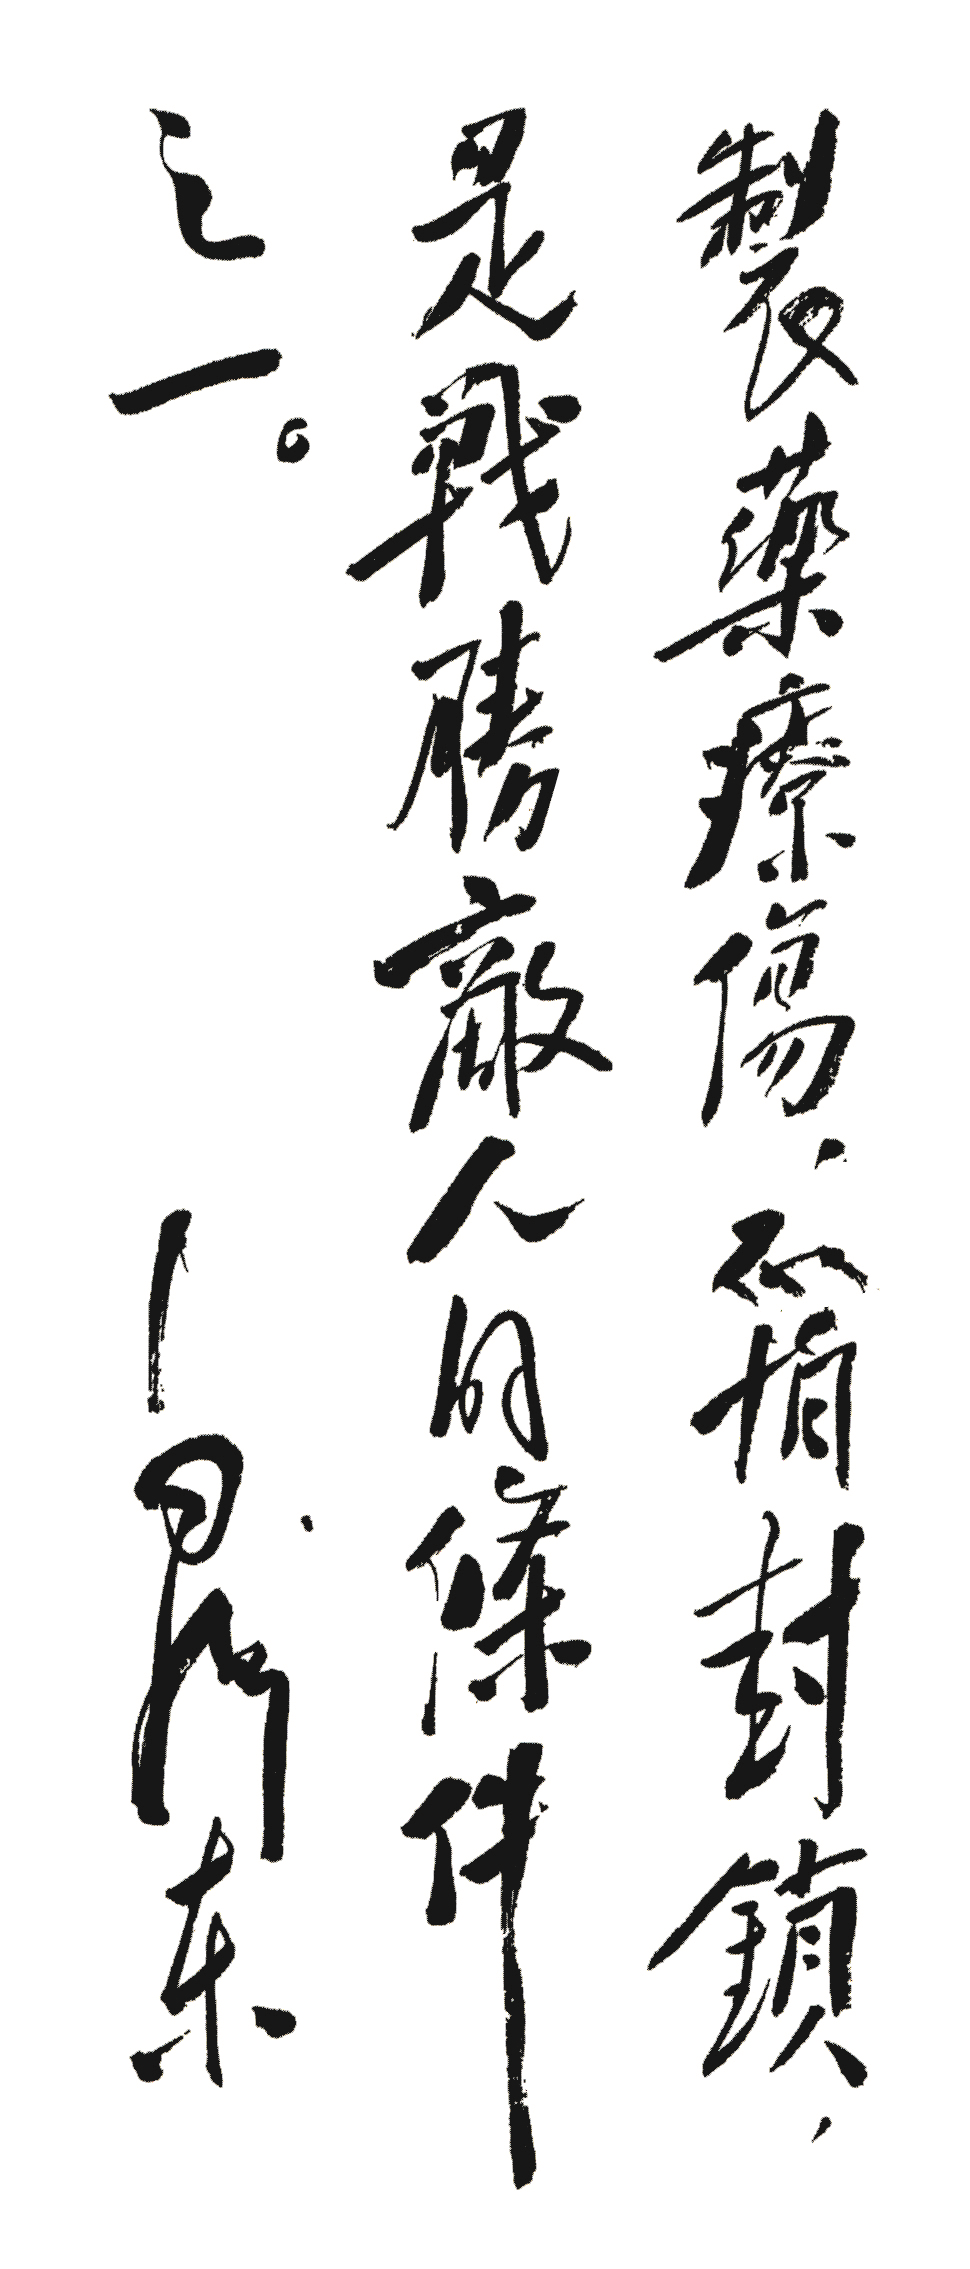 製藥療傷，不怕封鎖，
是戰勝敵人的條件
之一。